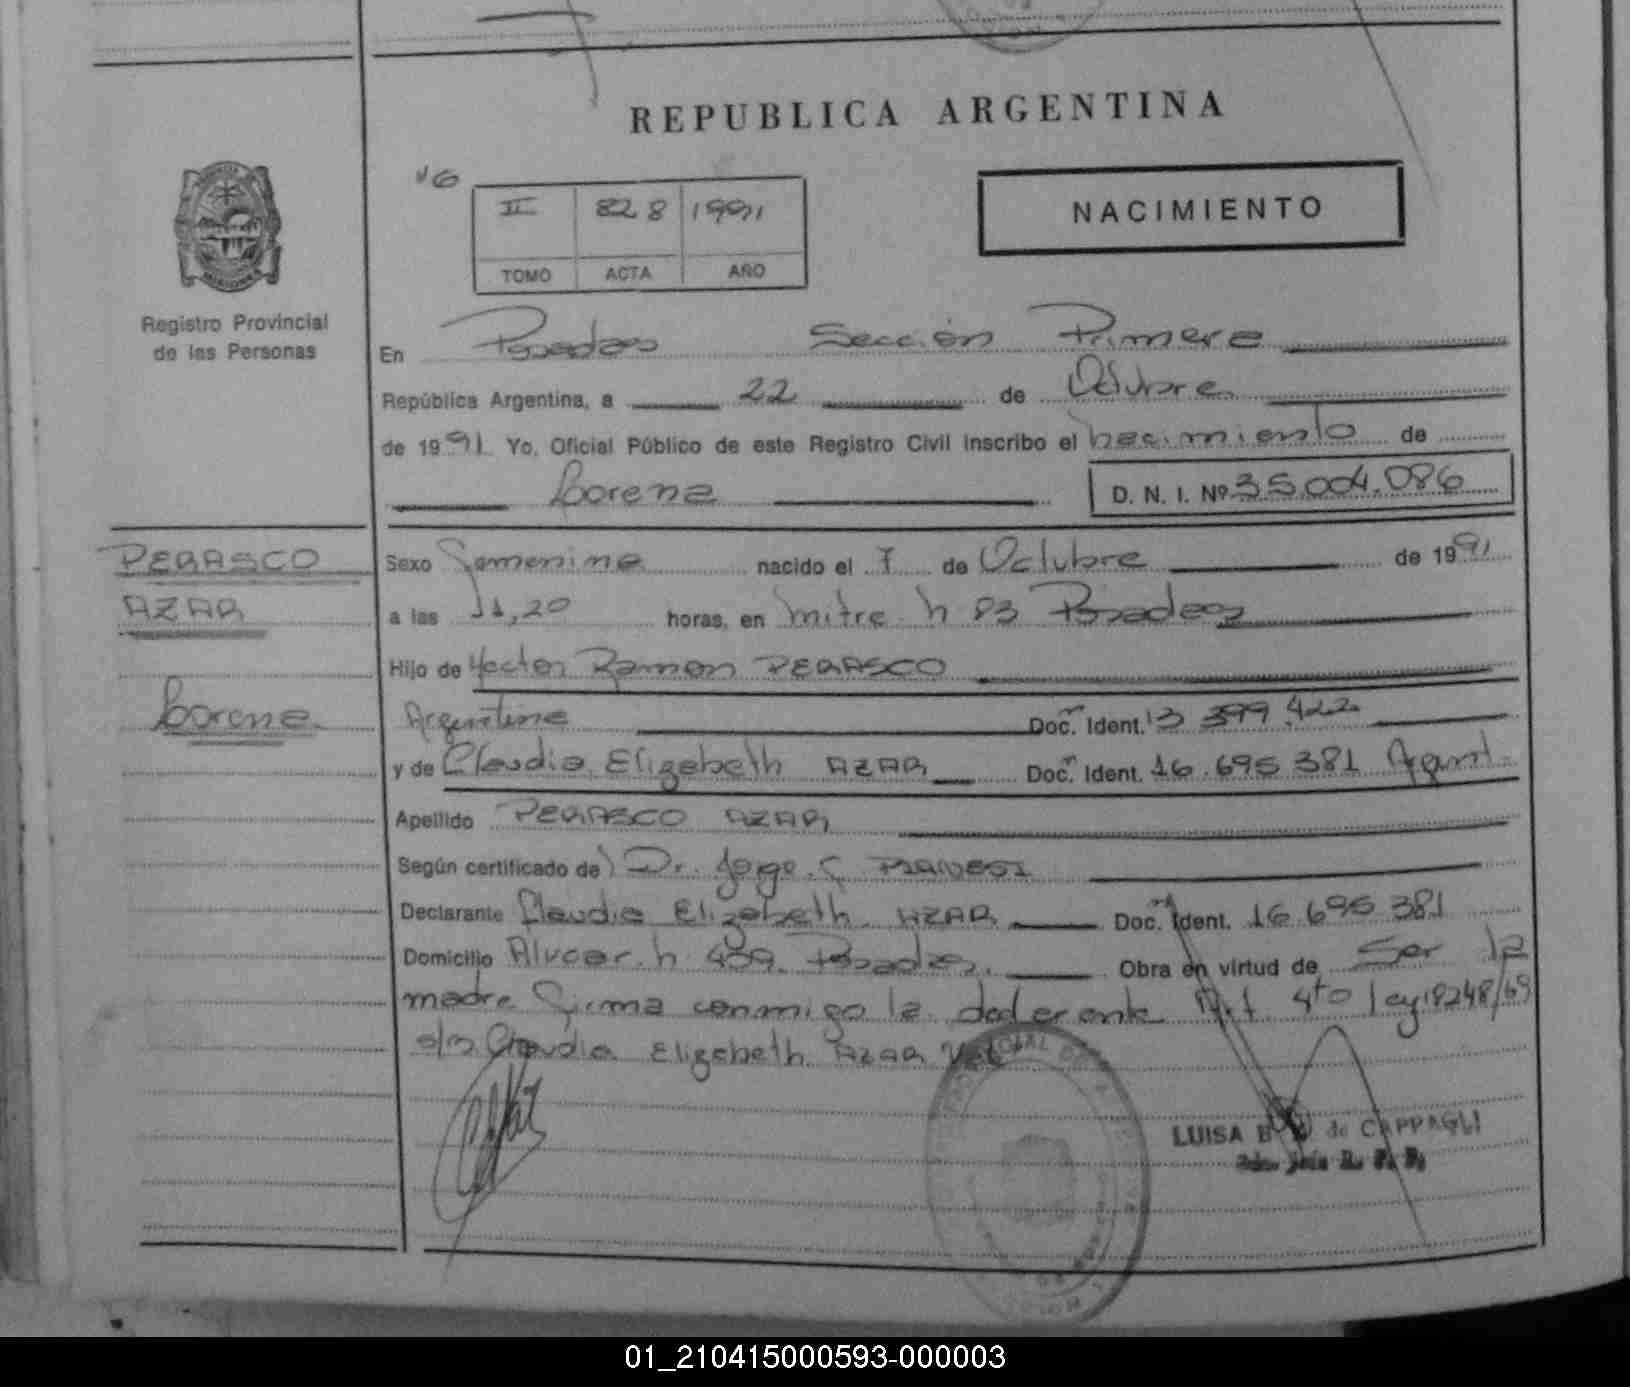 REPUBLICA ARGENTINA
NACIMIENTO
II 828 1991
TOMO ACTA AÑO
Registro Provincial
de las Personas
En Posadas Sección Primera
República Argentina, a 22 de Octubre
de 1991 Yo, Oficial Público de este Registro Civil inscribo el nacimiento de
Lorena D. N. I. Nº 35.004.086
PERASCO
AZAR
Lorena
Sexo Femenino nacido el 7 de Octubre de 1991
a las 11,20 horas, en mitre n 83 Posadas
Hijo de Hector Ramon PERASCO
Argentino Doc. Ident. 13 399 422
y de Claudia Elizabeth AZAR Doc. Ident. 16.695 381 Argent.
Apellido PERASCO AZAR
Según certificado de Dr. Jorge C.
Declarante Claudia Elizabeth AZAR Doc. Ident. 16.695 381
Domicilio Alvear n 409 Posadas. Obra en virtud de Ser la
madre Firma conmigo la declarante Art 4to ley 18248/69
Claudia Elizabeth AZAR Vale
LUISA B de CAPPAGLI
01_210415000593-000003